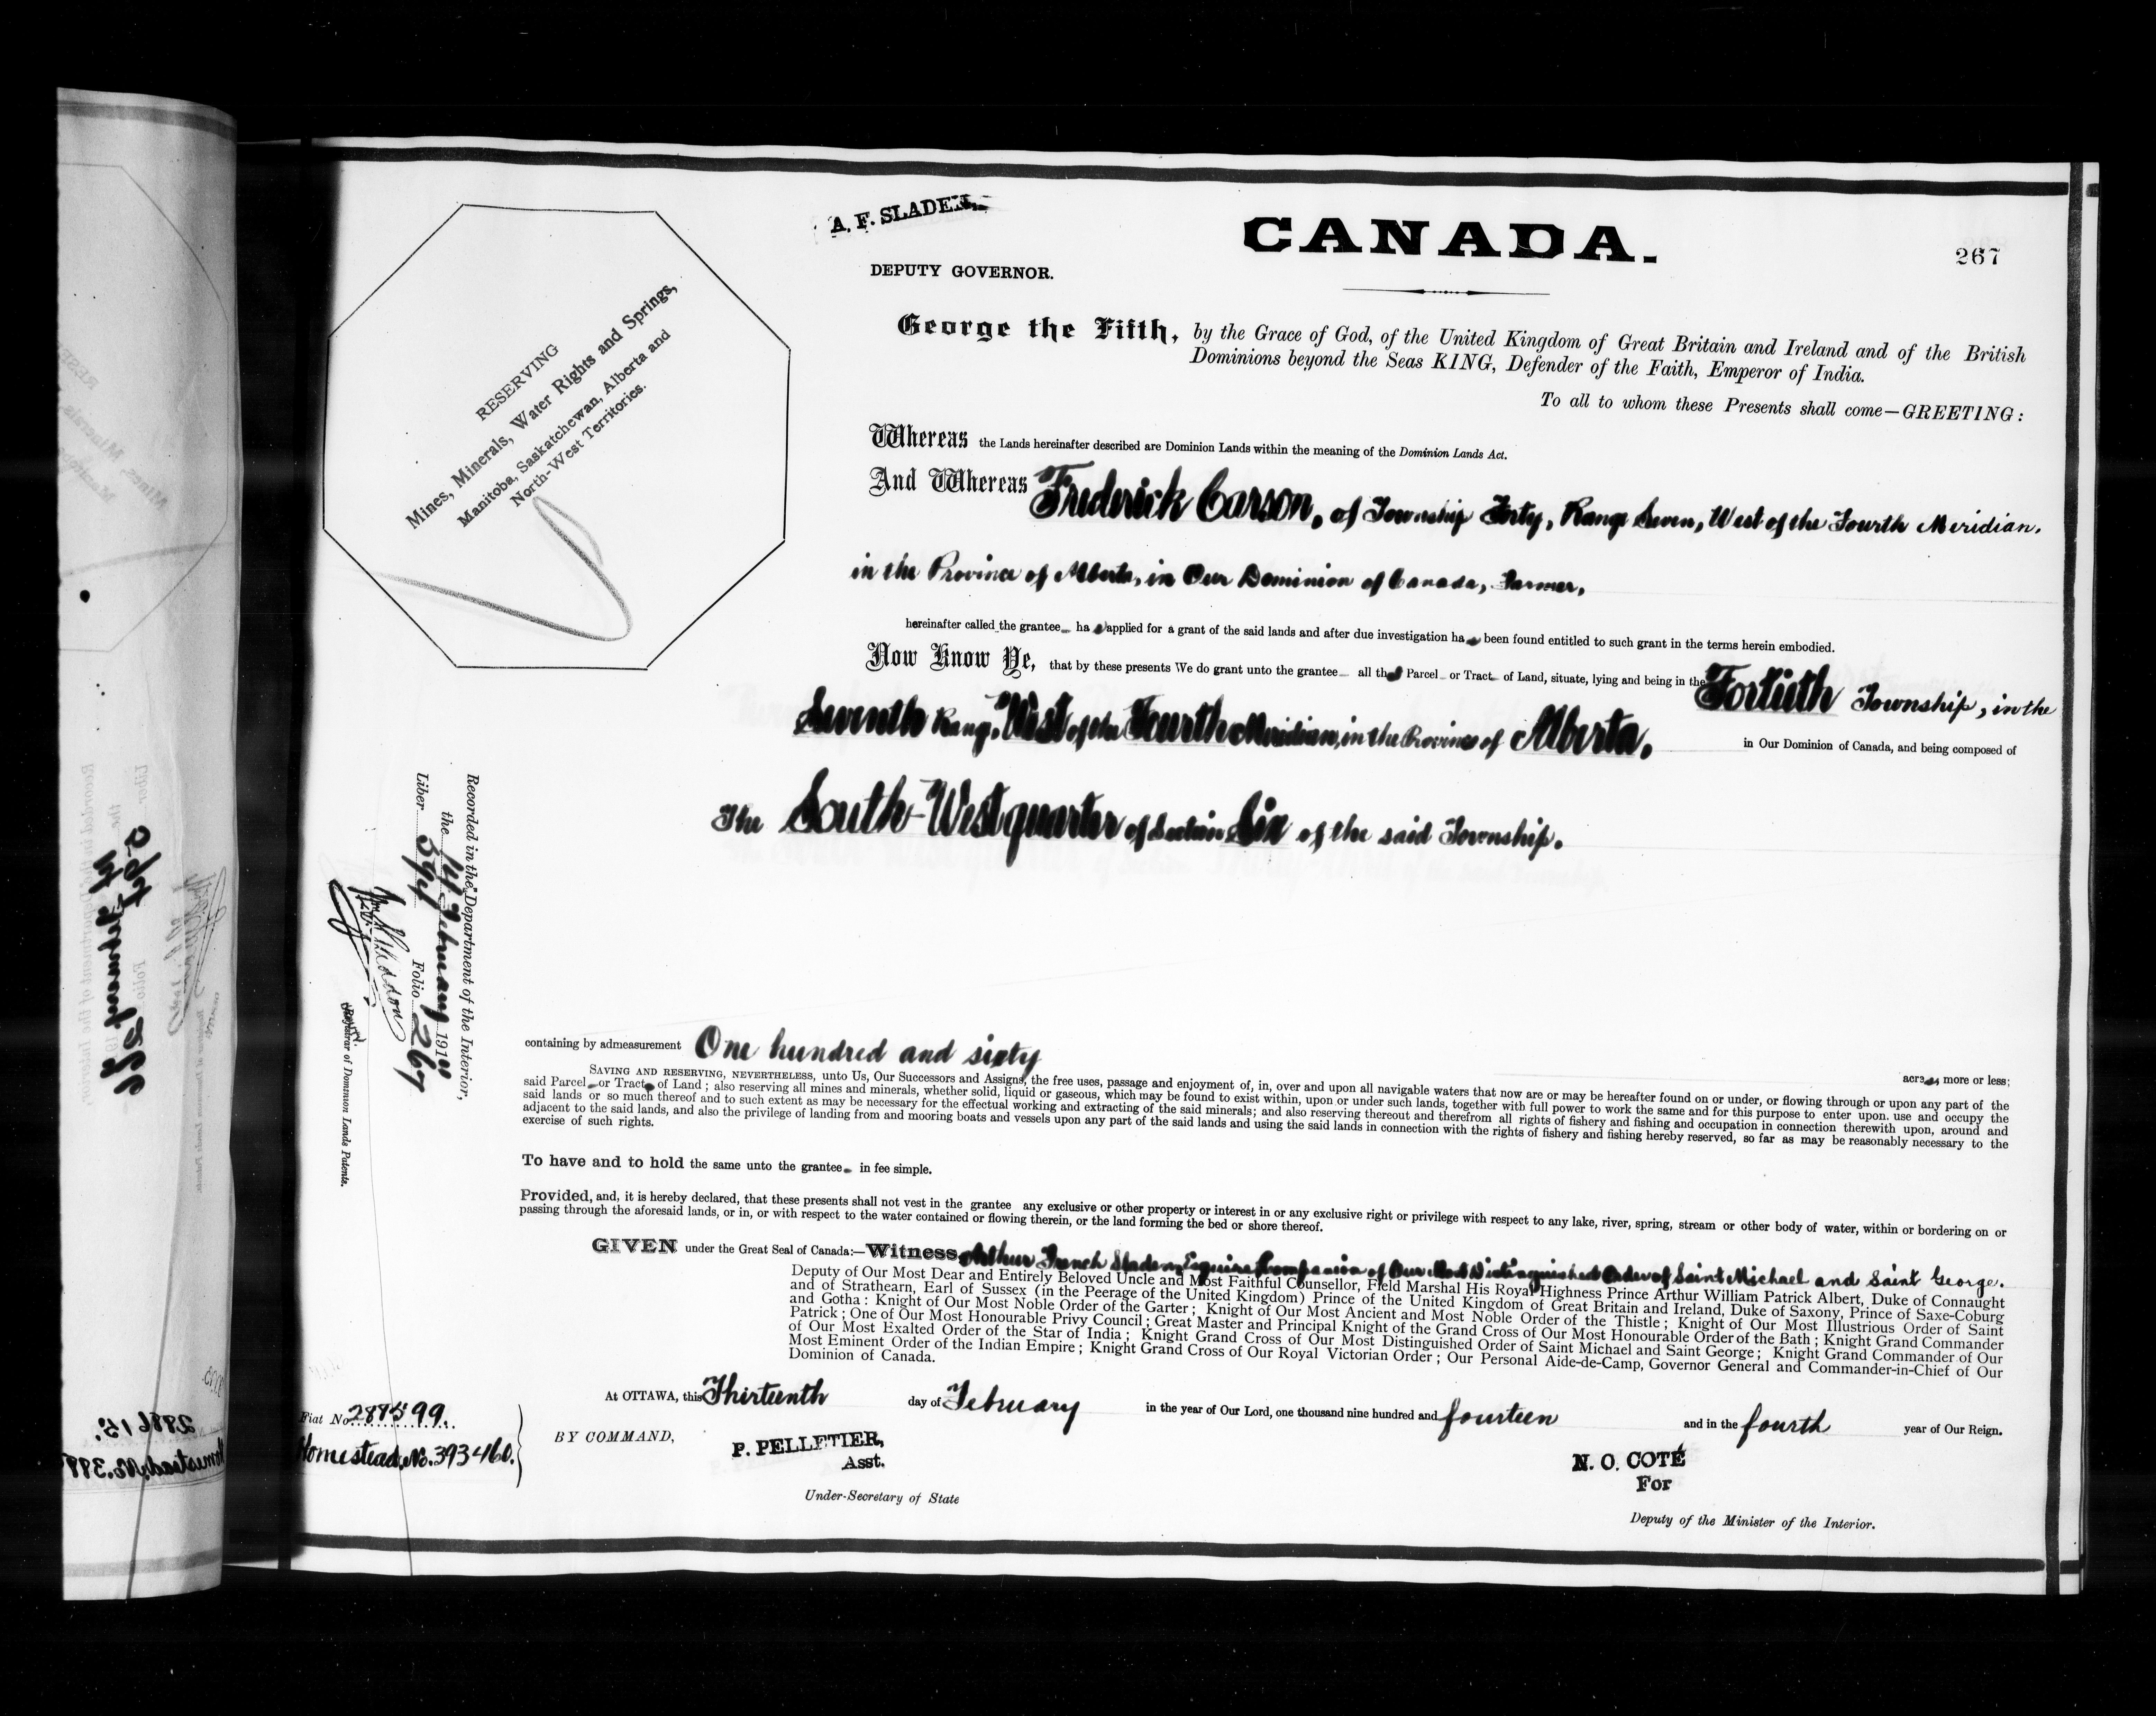 A. F. SLADEN,
DEPUTY GOVERNOR.
CANADA.
267
RESERVING
Mines, Minerals, Water Rights and Springs,
Manitoba, Saskatchewan, Alberta and
North-West Territories.
George the Fifth, by the Grace of God, of the United Kingdom of Great Britain and Ireland and of the British
Dominions beyond the Seas KING, Defender of the Faith, Emperor of India.
To all to whom these Presents shall come—GREETING:
Whereas the Lands hereinafter described are Dominion Lands within the meaning of the Dominion Lands Act.
And Whereas Frederick Carson, of Township Forty, Range Seven, West of the Fourth Meridian,
in the Province of Alberta, in Our Dominion of Canada, Farmer,
hereinafter called the grantee ha s applied for a grant of the said lands and after due investigation ha s been found entitled to such grant in the terms herein embodied.
Now Know Ye, that by these presents We do grant unto the grantee all that Parcel or Tract of Land, situate, lying and being in the Fortieth Township, in the
Seventh Range, West of the Fourth Meridian, in the Province of Alberta, in Our Dominion of Canada, and being composed of
The South-West quarter of Section Six of the said Township.
Recorded in the Department of the Interior,
the 14 February 1914
Liber 594 Folio 267
Registrar of Dominion Lands Patents.
containing by admeasurement One hundred and sixty acres, more or less;
SAVING AND RESERVING, NEVERTHELESS, unto Us, Our Successors and Assigns, the free uses, passage and enjoyment of, in, over and upon all navigable waters that now are or may be hereafter found on or under, or flowing through or upon any part of the
said Parcel or Tract of Land; also reserving all mines and minerals, whether solid, liquid or gaseous, which may be found to exist within, upon or under such lands, together with full power to work the same and for this purpose to enter upon. use and occupy the
said lands or so much thereof and to such extent as may be necessary for the effectual working and extracting of the said minerals; and also reserving thereout and therefrom all rights of fishery and fishing and occupation in connection therewith upon, around and
adjacent to the said lands, and also the privilege of landing from and mooring boats and vessels upon any part of the said lands and using the said lands in connection with the rights of fishery and fishing hereby reserved, so far as may be reasonably necessary to the
exercise of such rights.
To have and to hold the same unto the grantee in fee simple.
Provided, and, it is hereby declared, that these presents shall not vest in the grantee any exclusive or other property or interest in or any exclusive right or privilege with respect to any lake, river, spring, stream or other body of water, within or bordering on or
passing through the aforesaid lands, or in, or with respect to the water contained or flowing therein, or the land forming the bed or shore thereof.
GIVEN under the Great Seal of Canada:—Witness, Arthur French Sladen, Esquire, Companion of Our Most Distinguished Order of Saint Michael and Saint George.
Deputy of Our Most Dear and Entirely Beloved Uncle and Most Faithful Counsellor, Field Marshal His Royal Highness Prince Arthur William Patrick Albert, Duke of Connaught
and of Strathearn, Earl of Sussex (in the Peerage of the United Kingdom) Prince of the United Kingdom of Great Britain and Ireland, Duke of Saxony, Prince of Saxe-Coburg
and Gotha: Knight of Our Most Noble Order of the Garter; Knight of Our Most Ancient and Most Noble Order of the Thistle; Knight of Our Most Illustrious Order of Saint
Patrick; One of Our Most Honourable Privy Council; Great Master and Principal Knight of the Grand Cross of Our Most Honourable Order of the Bath; Knight Grand Commander
of Our Most Exalted Order of the Star of India; Knight Grand Cross of Our Most Distinguished Order of Saint Michael and Saint George; Knight Grand Commander of Our
Most Eminent Order of the Indian Empire; Knight Grand Cross of Our Royal Victorian Order; Our Personal Aide-de-Camp, Governor General and Commander-in-Chief of Our
Dominion of Canada.
At OTTAWA, this Thirteenth day of February in the year of Our Lord, one thousand nine hundred and fourteen and in the fourth year of Our Reign.
Fiat No. 287599.
Homestead, No. 393460.
BY COMMAND,
P. PELLETIER,
Asst.
Under-Secretary of State
N. O. COTÉ
For
Deputy of the Minister of the Interior.